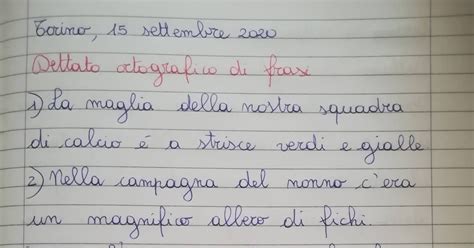 Torino, 15 settembre 2020
Dettato ortografico di frasi
1) La maglia della nostra squadra
di calcio é a strisce verdi e gialle
2) Nella campagna del nonno c'era
un magnifico albero di fichi.